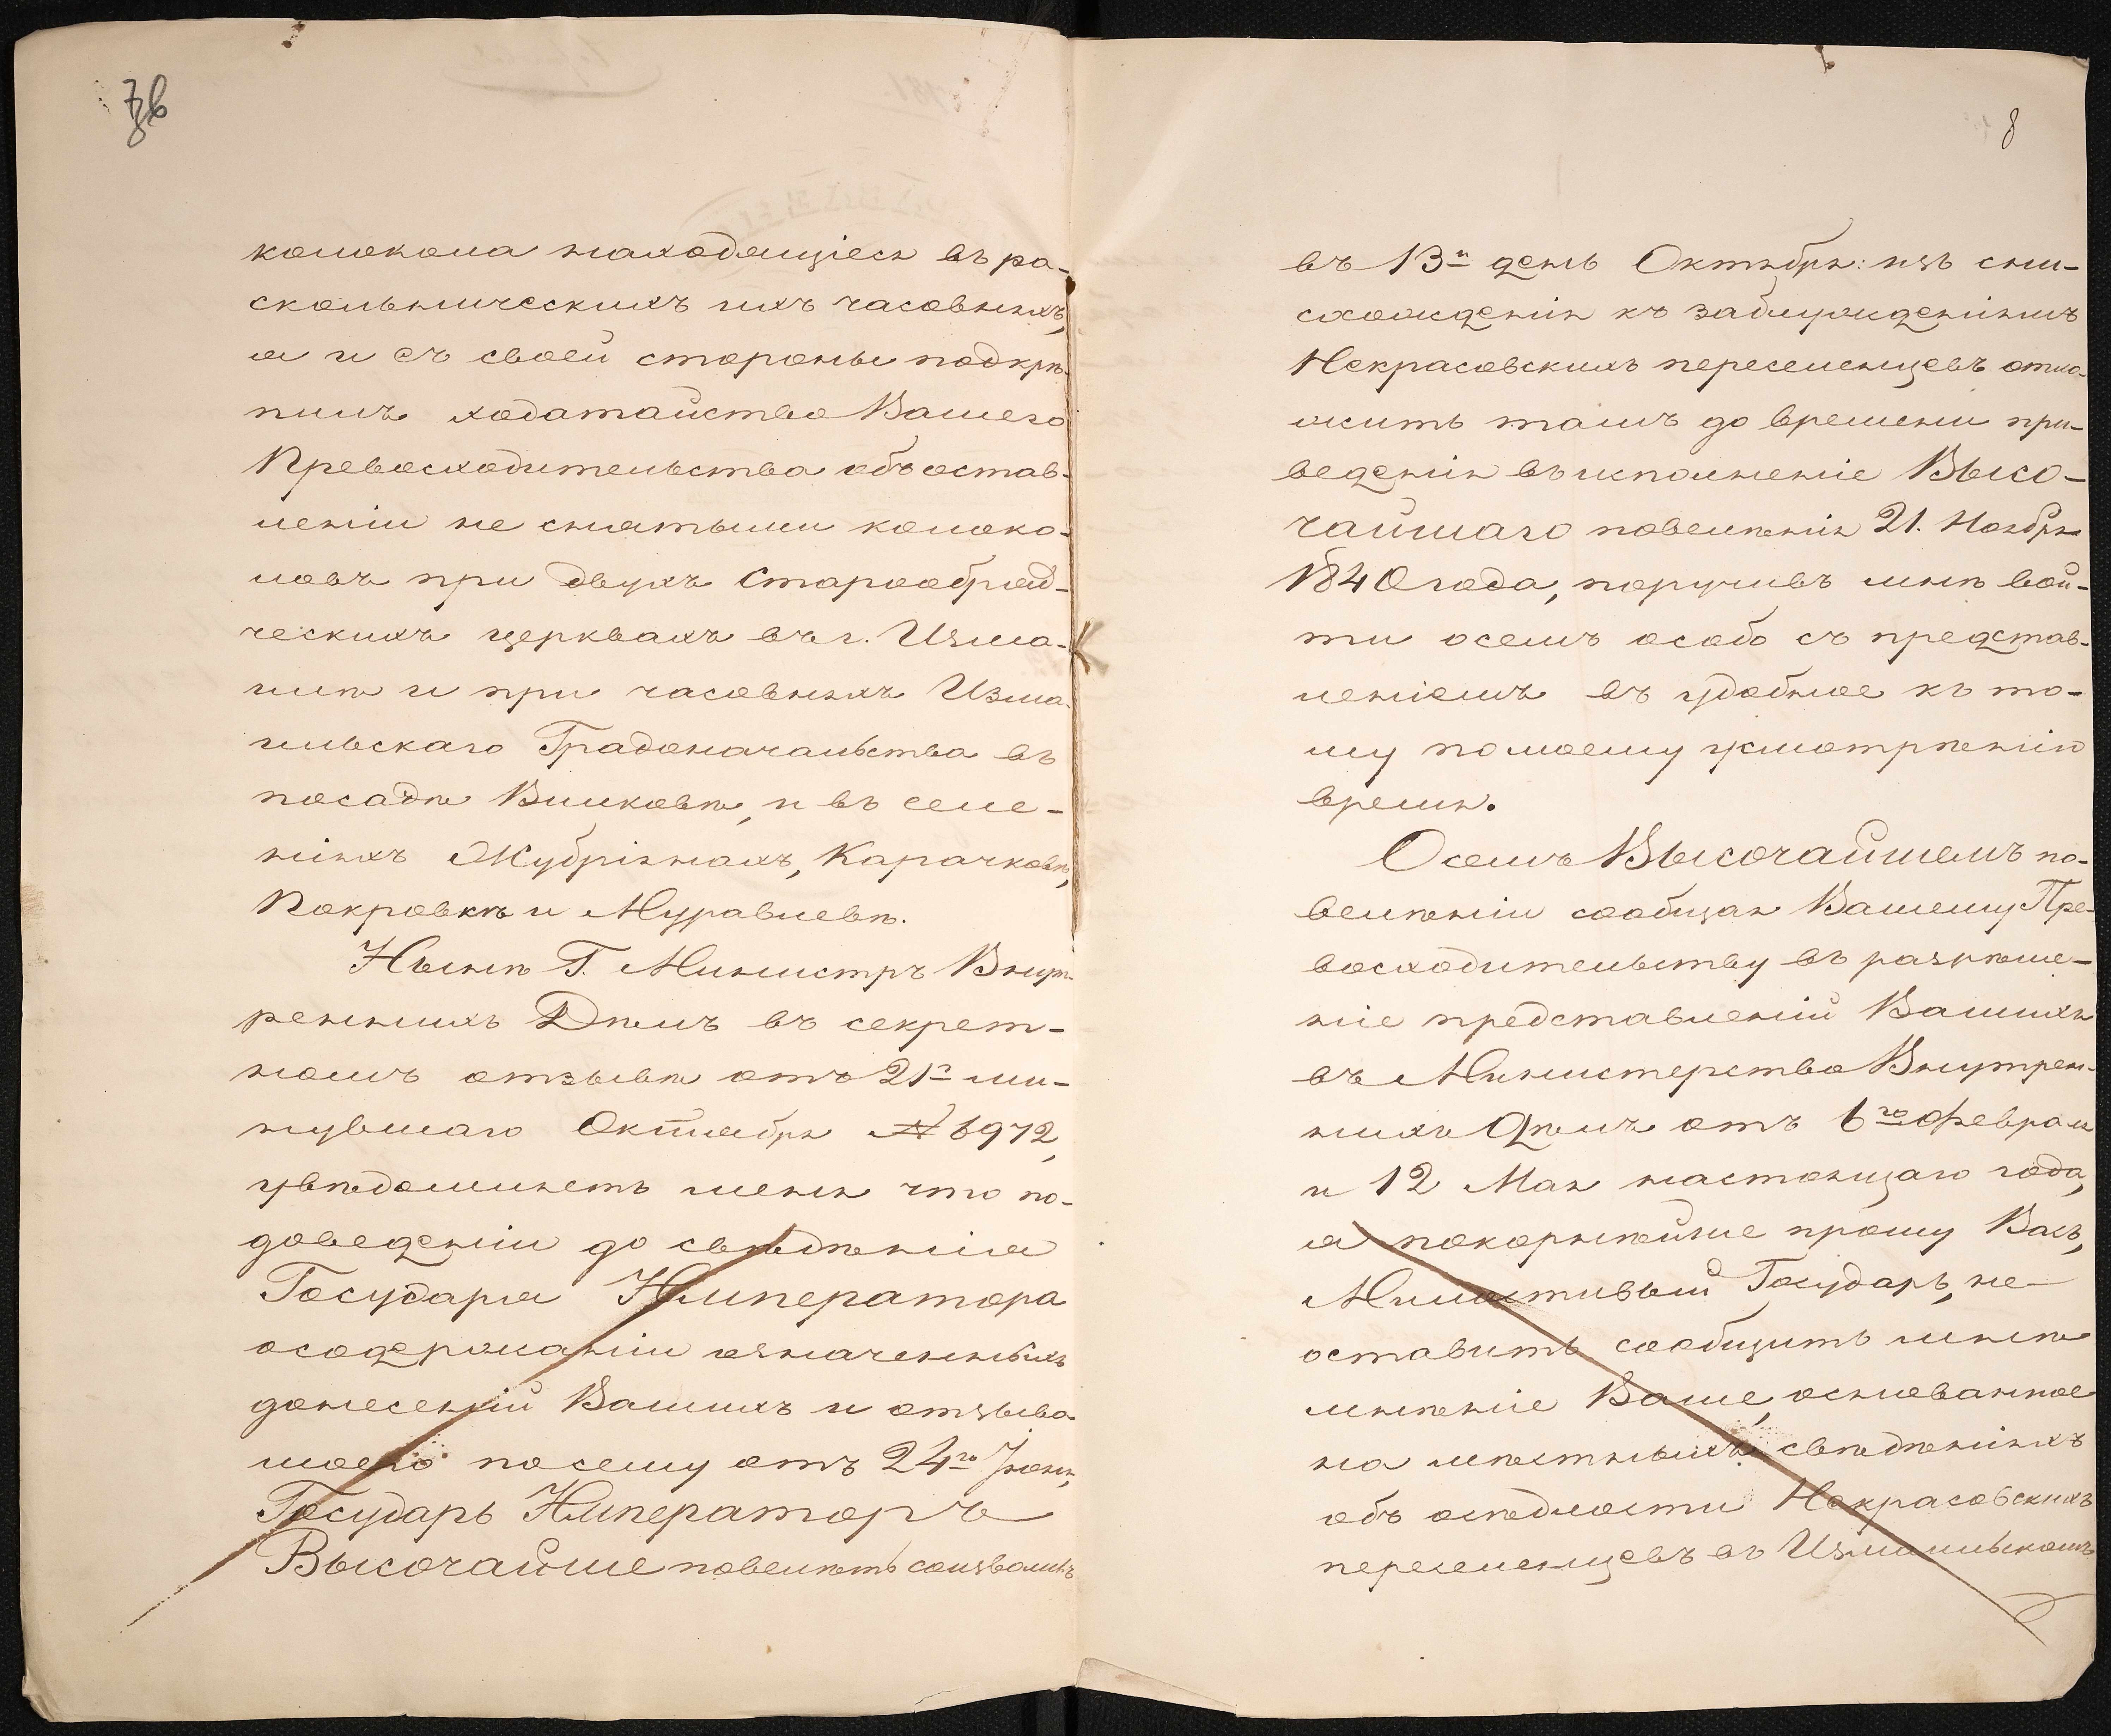 колокола находящіеся въ ра-
скольническихъ ихъ часовняхъ,
я и съ своей стороны подкрѣ-
пилъ ходатайство Вашего
Превосходительства объ остав-
леніи не снятыми колоко-
ловъ при двухъ Старообряд-
ческихъ церквахъ въ г. Изма-
илѣ и при часовняхъ Изма-
ильскаго Градоначальства въ
посадѣ Вилковѣ, и въ селе-
ніяхъ Жубріянахъ, Карачковѣ,
Покровкѣ и Муравлевѣ.
Нынѣ Г. Министръ Внут-
реннихъ Дѣлъ въ секрет-
номъ отзывѣ отъ 21го ми-
нувшаго Октября № 6972,
увѣдомляетъ меня что по-
доведеніи до свѣдѣнія
Государя Императора
о содержаніи означенныхъ
донесеній Вашихъ и отзыва
моего по сему отъ 24го Іюня,
Государь Императоръ
Высочайше повелѣть соизволилъ
8
въ 13й день Октября: изъ сни-
схожденія къ заблужденіямъ
Некрасовскихъ переселенцевъ отло-
жить тамъ до времени при-
веденія въ исполненіе Высо-
чайшаго повелѣнія 21. Ноября
1840 года, поручивъ мнѣ вой-
ти о семъ особо съ представ-
леніемъ въ удобное къ то-
му по моему усмотрѣнію
время.
О семъ Высочайшемъ по-
велѣніи сообщая Вашему Пре-
восходительству въ разрѣше-
ніе представленій Вашихъ
въ Министерство Внутрен-
нихъ Дѣлъ отъ 6го Февраля
и 12 Мая настоящаго года,
я покорнѣйше прошу Васъ,
Милостивый Государь, не-
оставить сообщить мнѣ
мнѣніе Ваше, основанное
на мѣстныхъ свѣдѣніяхъ
объ осѣдлости Некрасовскихъ
переселенцевъ въ Измаильскомъ